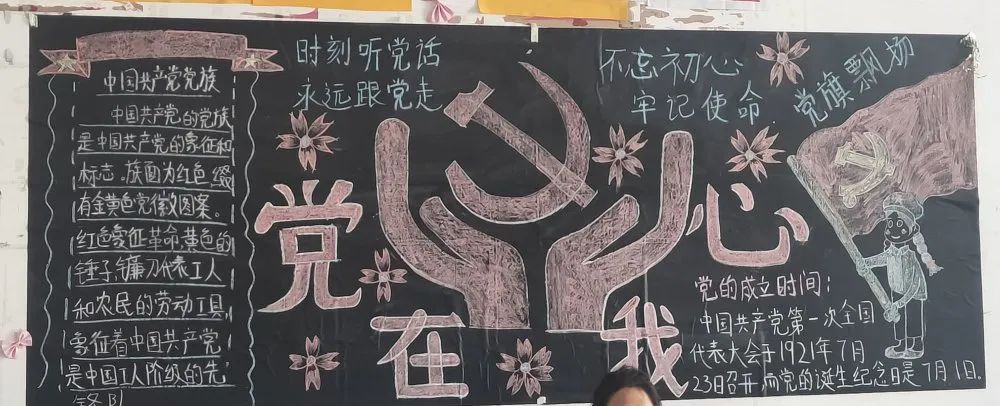 中国共产党党族
中国共产党的党族
是中国共产党的象征和
标志。族面为红色,缀
有金黄色党徽图案。
红色象征革命,黄色的
锤子、镰刀代表工人
和农民的劳动工具,
象征着中国共产党
是中国工人阶级的先
锋队
时刻听党话
永远跟党走
不忘初心
牢记使命.
党旗飘扬
党在我心
党的成立时间:
中国共产党第一次全国
代表大会于1921年7月
23日召开,而党的诞生纪念日是7月1日。